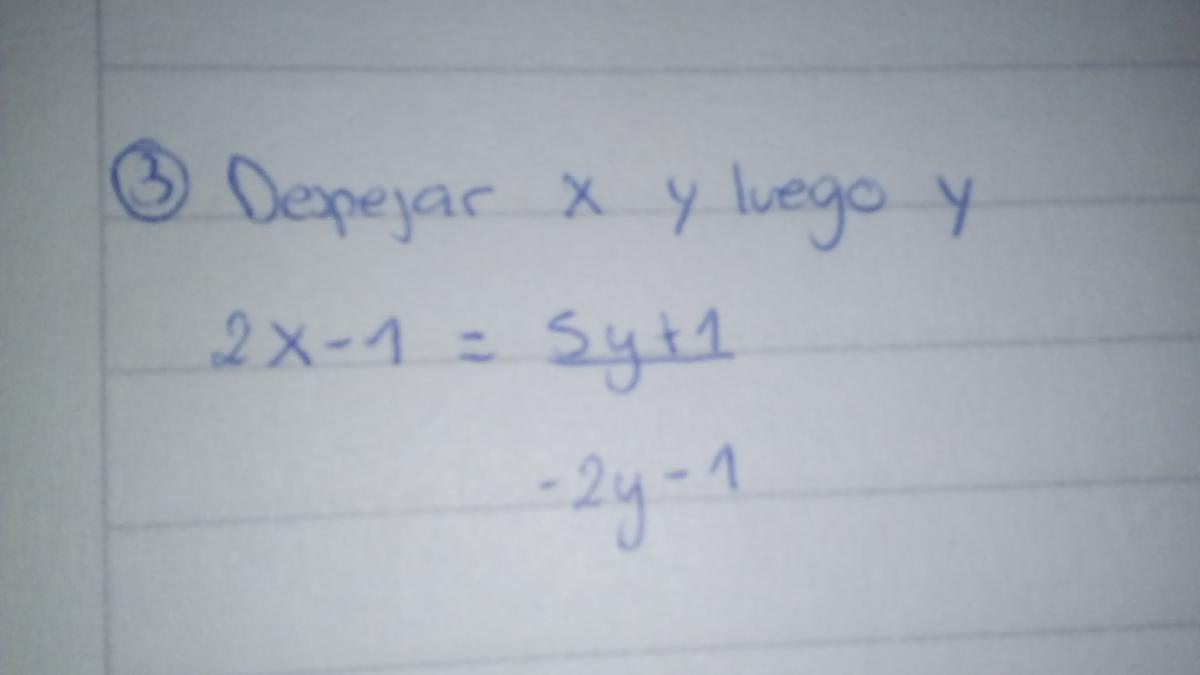 ③ Despejar x y luego y
2x-1 = 5y+1
-2y-1